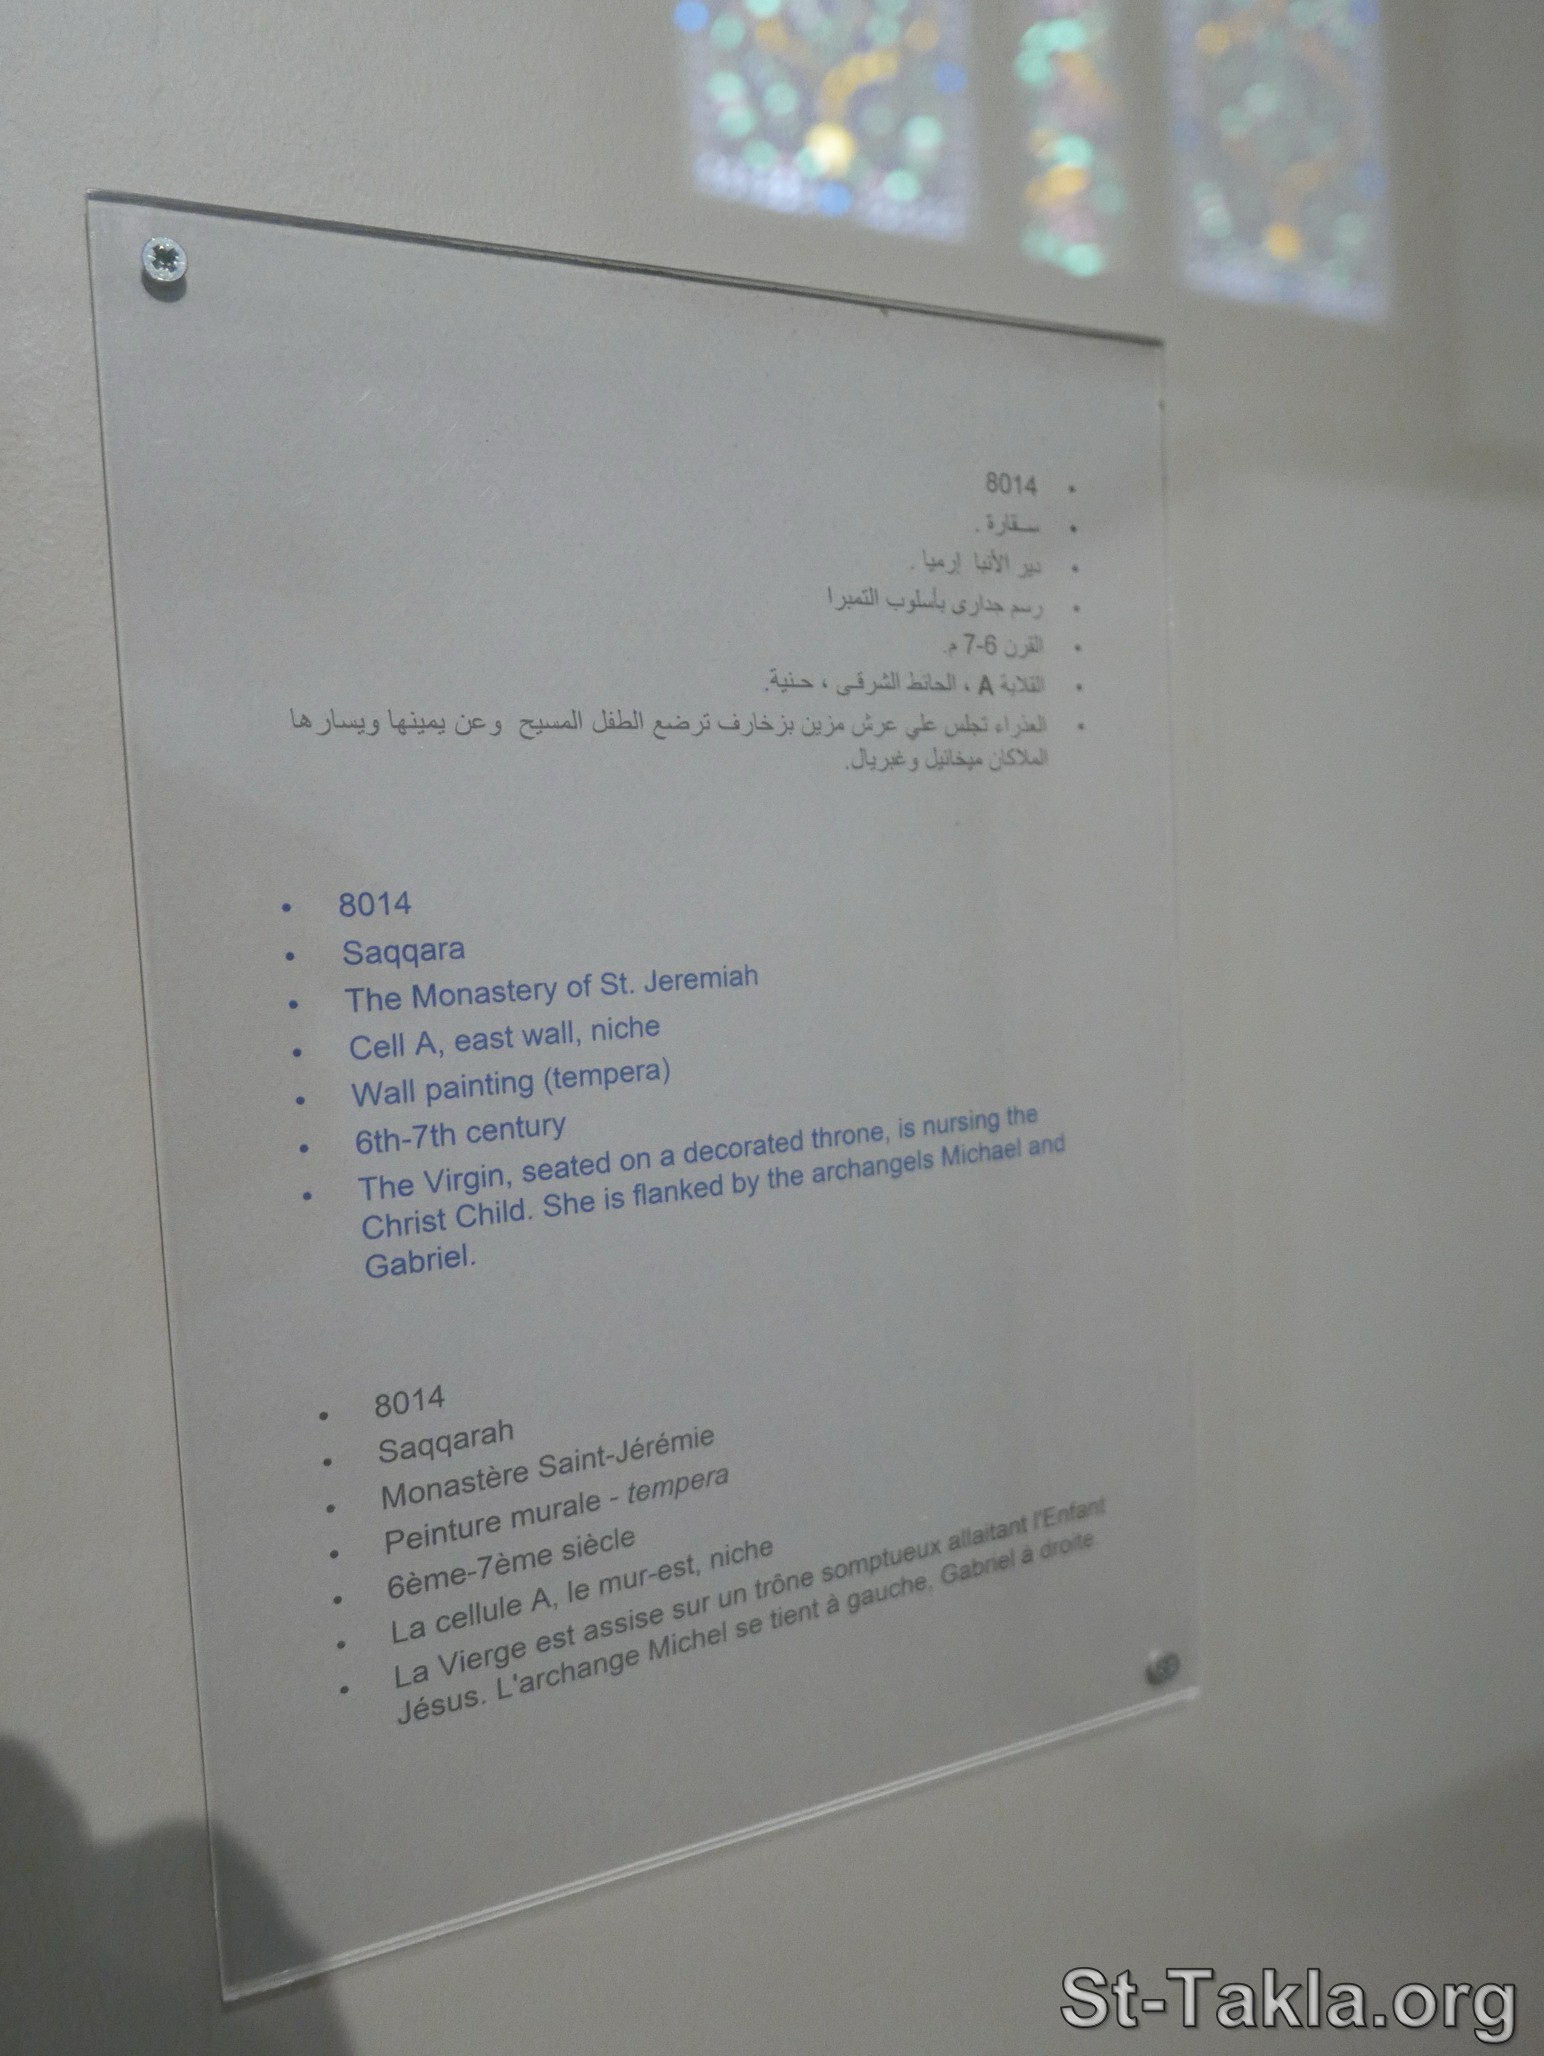 • 8014
• سقارة .
• دير الأنبا إرميا .
• رسم جدارى بأسلوب التمبرا
• القرن 6-7 م.
• القلاية A ، الحائط الشرقى ، حنية.
• العذراء تجلس علي عرش مزين بزخارف ترضع الطفل المسيح وعن يمينها ويسارها
الملاكان ميخائيل وغبريال.
• 8014
• Saqqara
• The Monastery of St. Jeremiah
• Cell A, east wall, niche
• Wall painting (tempera)
• 6th-7th century
• The Virgin, seated on a decorated throne, is nursing the
Christ Child. She is flanked by the archangels Michael and
Gabriel.
• 8014
• Saqqarah
• Monastère Saint-Jérémie
• Peinture murale - tempera
• 6ème-7ème siècle
• La cellule A, le mur-est, niche
• La Vierge est assise sur un trône somptueux allaitant l'Enfant
Jésus. L'archange Michel se tient à gauche, Gabriel à droite.
St-Takla.org